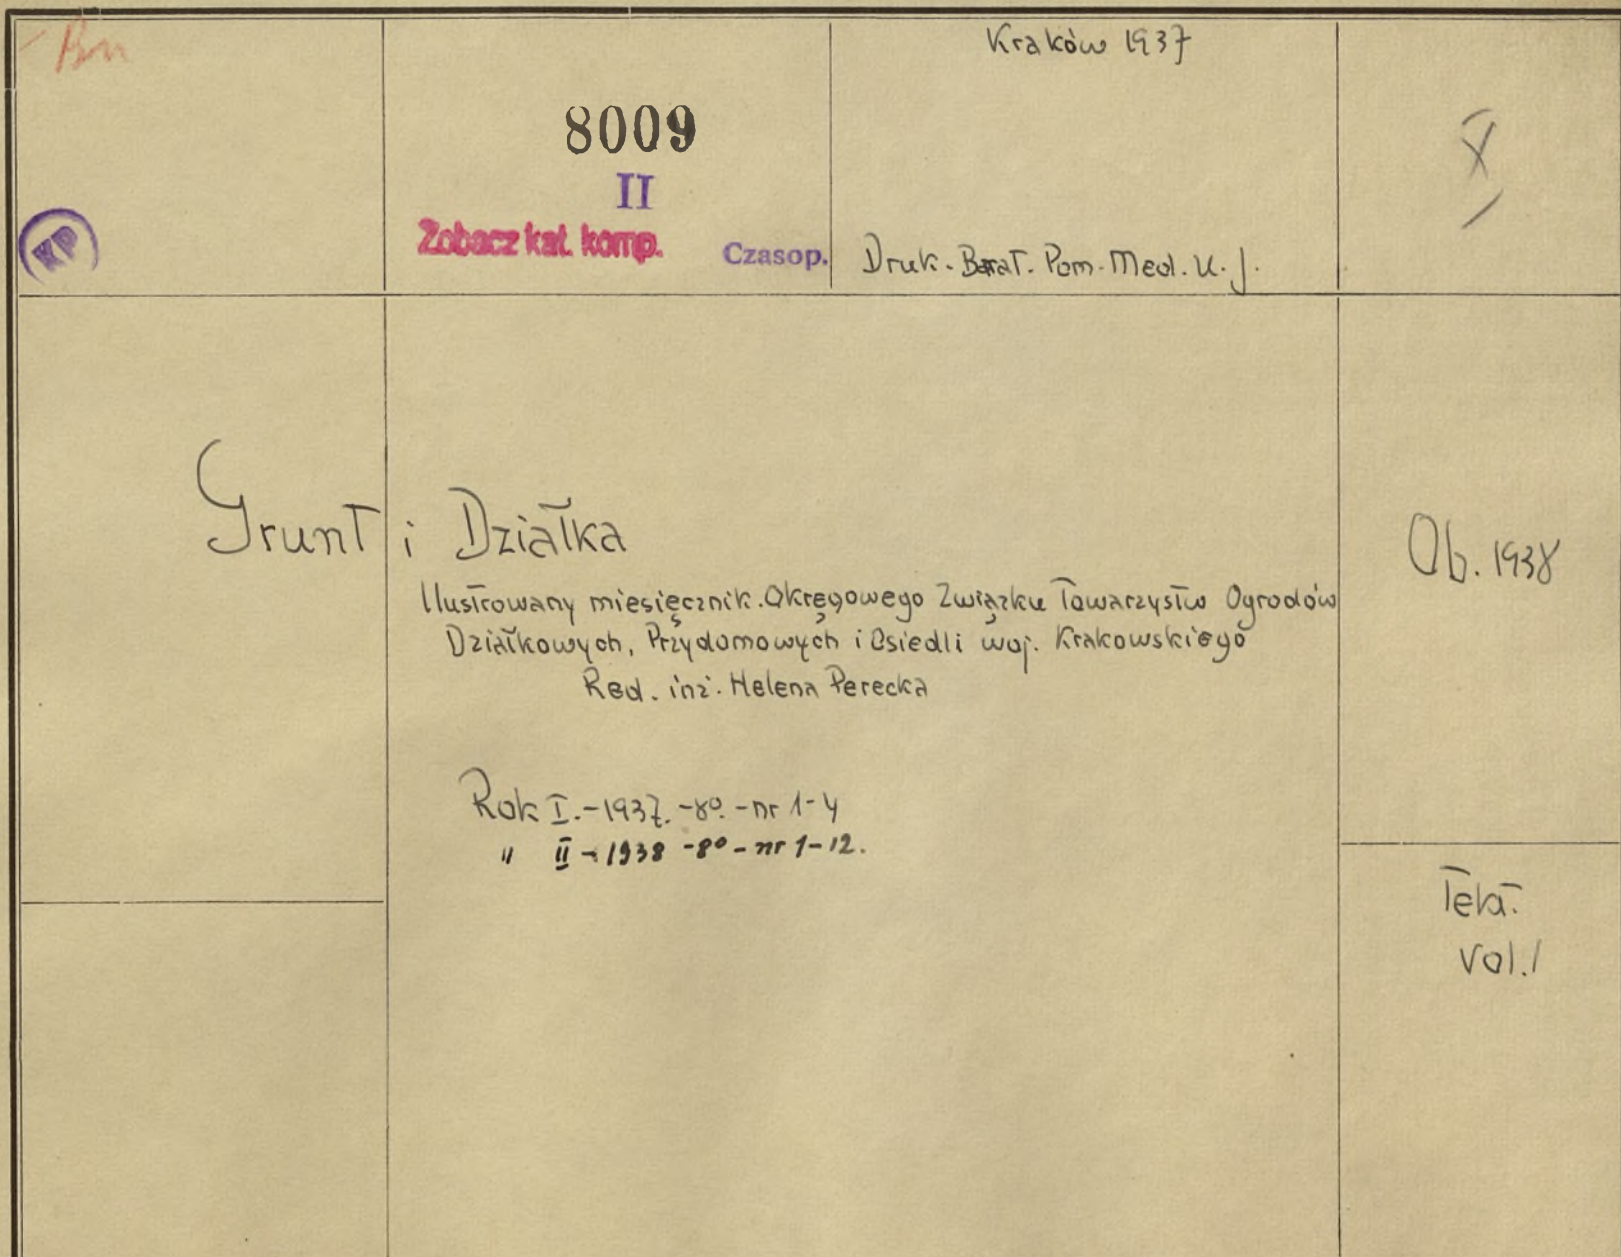 Bn
Kraków 1937
8009
II
Zobacz kat. komp.
Czasop.
KP
Druk. Brat. Pom. Med. U. J.
X
Grunt i Działka
Ilustrowany miesięcznik. Okręgowego Związku Towarzystw Ogrodów
Działkowych, Przydomowych i Osiedli woj. Krakowskiego
Red. inż. Helena Perecka
Ob. 1938
Rok I. - 1937. - 8º. - nr 1-4
" II - 1938 - 8º - nr 1-12.
Teka.
Vol. 1